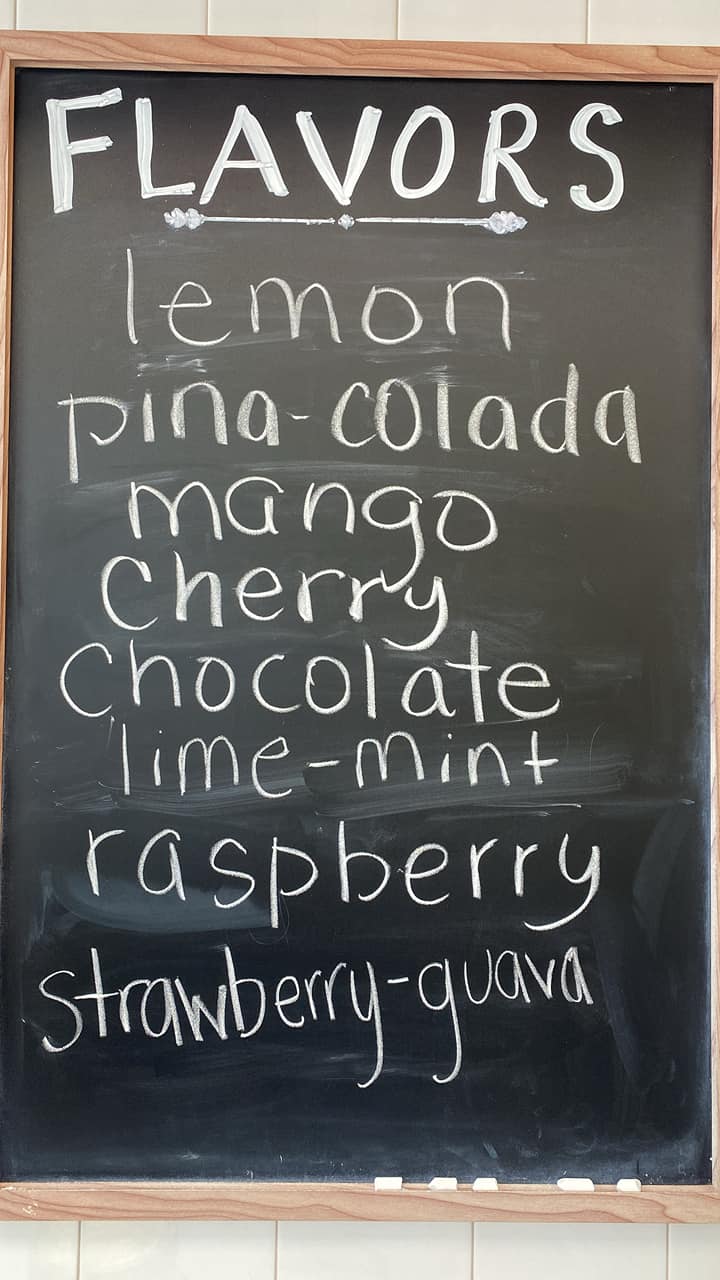 FLAVORS
lemon
pina-colada
mango
Cherry
Chocolate
lime-mint
raspberry
strawberry-guava